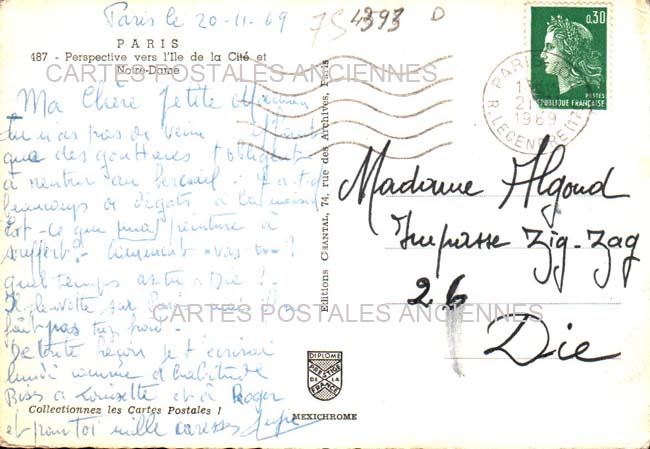 Paris le 20-11-69
75 4393 D
PARIS
487 - Perspective vers l'Ile de la Cité et
Notre-Dame
CARTES POSTALES ANCIENNES
Ma Chère Petite Maman
tu n'as pas de veine
que des gouttières t'obligent
à rentrer au bercail.
beaucoup de dégats à la
Est-ce que ma peinture à
souffert? Comment vas
quel temps as tu à Die?
sur Paris mais
fait pas trop froid-
De toute façon je t'écrirai
lundi comme d'habitude
Bises à Louisette et à Roger
et pour toi mille caresses
Collectionnez les Cartes Postales !
Editions CHANTAL, 74, rue des Archives, Paris
DIPLOME
PRESTIGE
DE LA
FRANCE
MEXICHROME
0,30
POSTES
REPUBLIQUE FRANÇAISE
PARIS
21
1969
R. LECENTRE (17
Madame Algoud
Impasse Zig-Zag
26
CARTES POSTALES ANCIENNES
Die